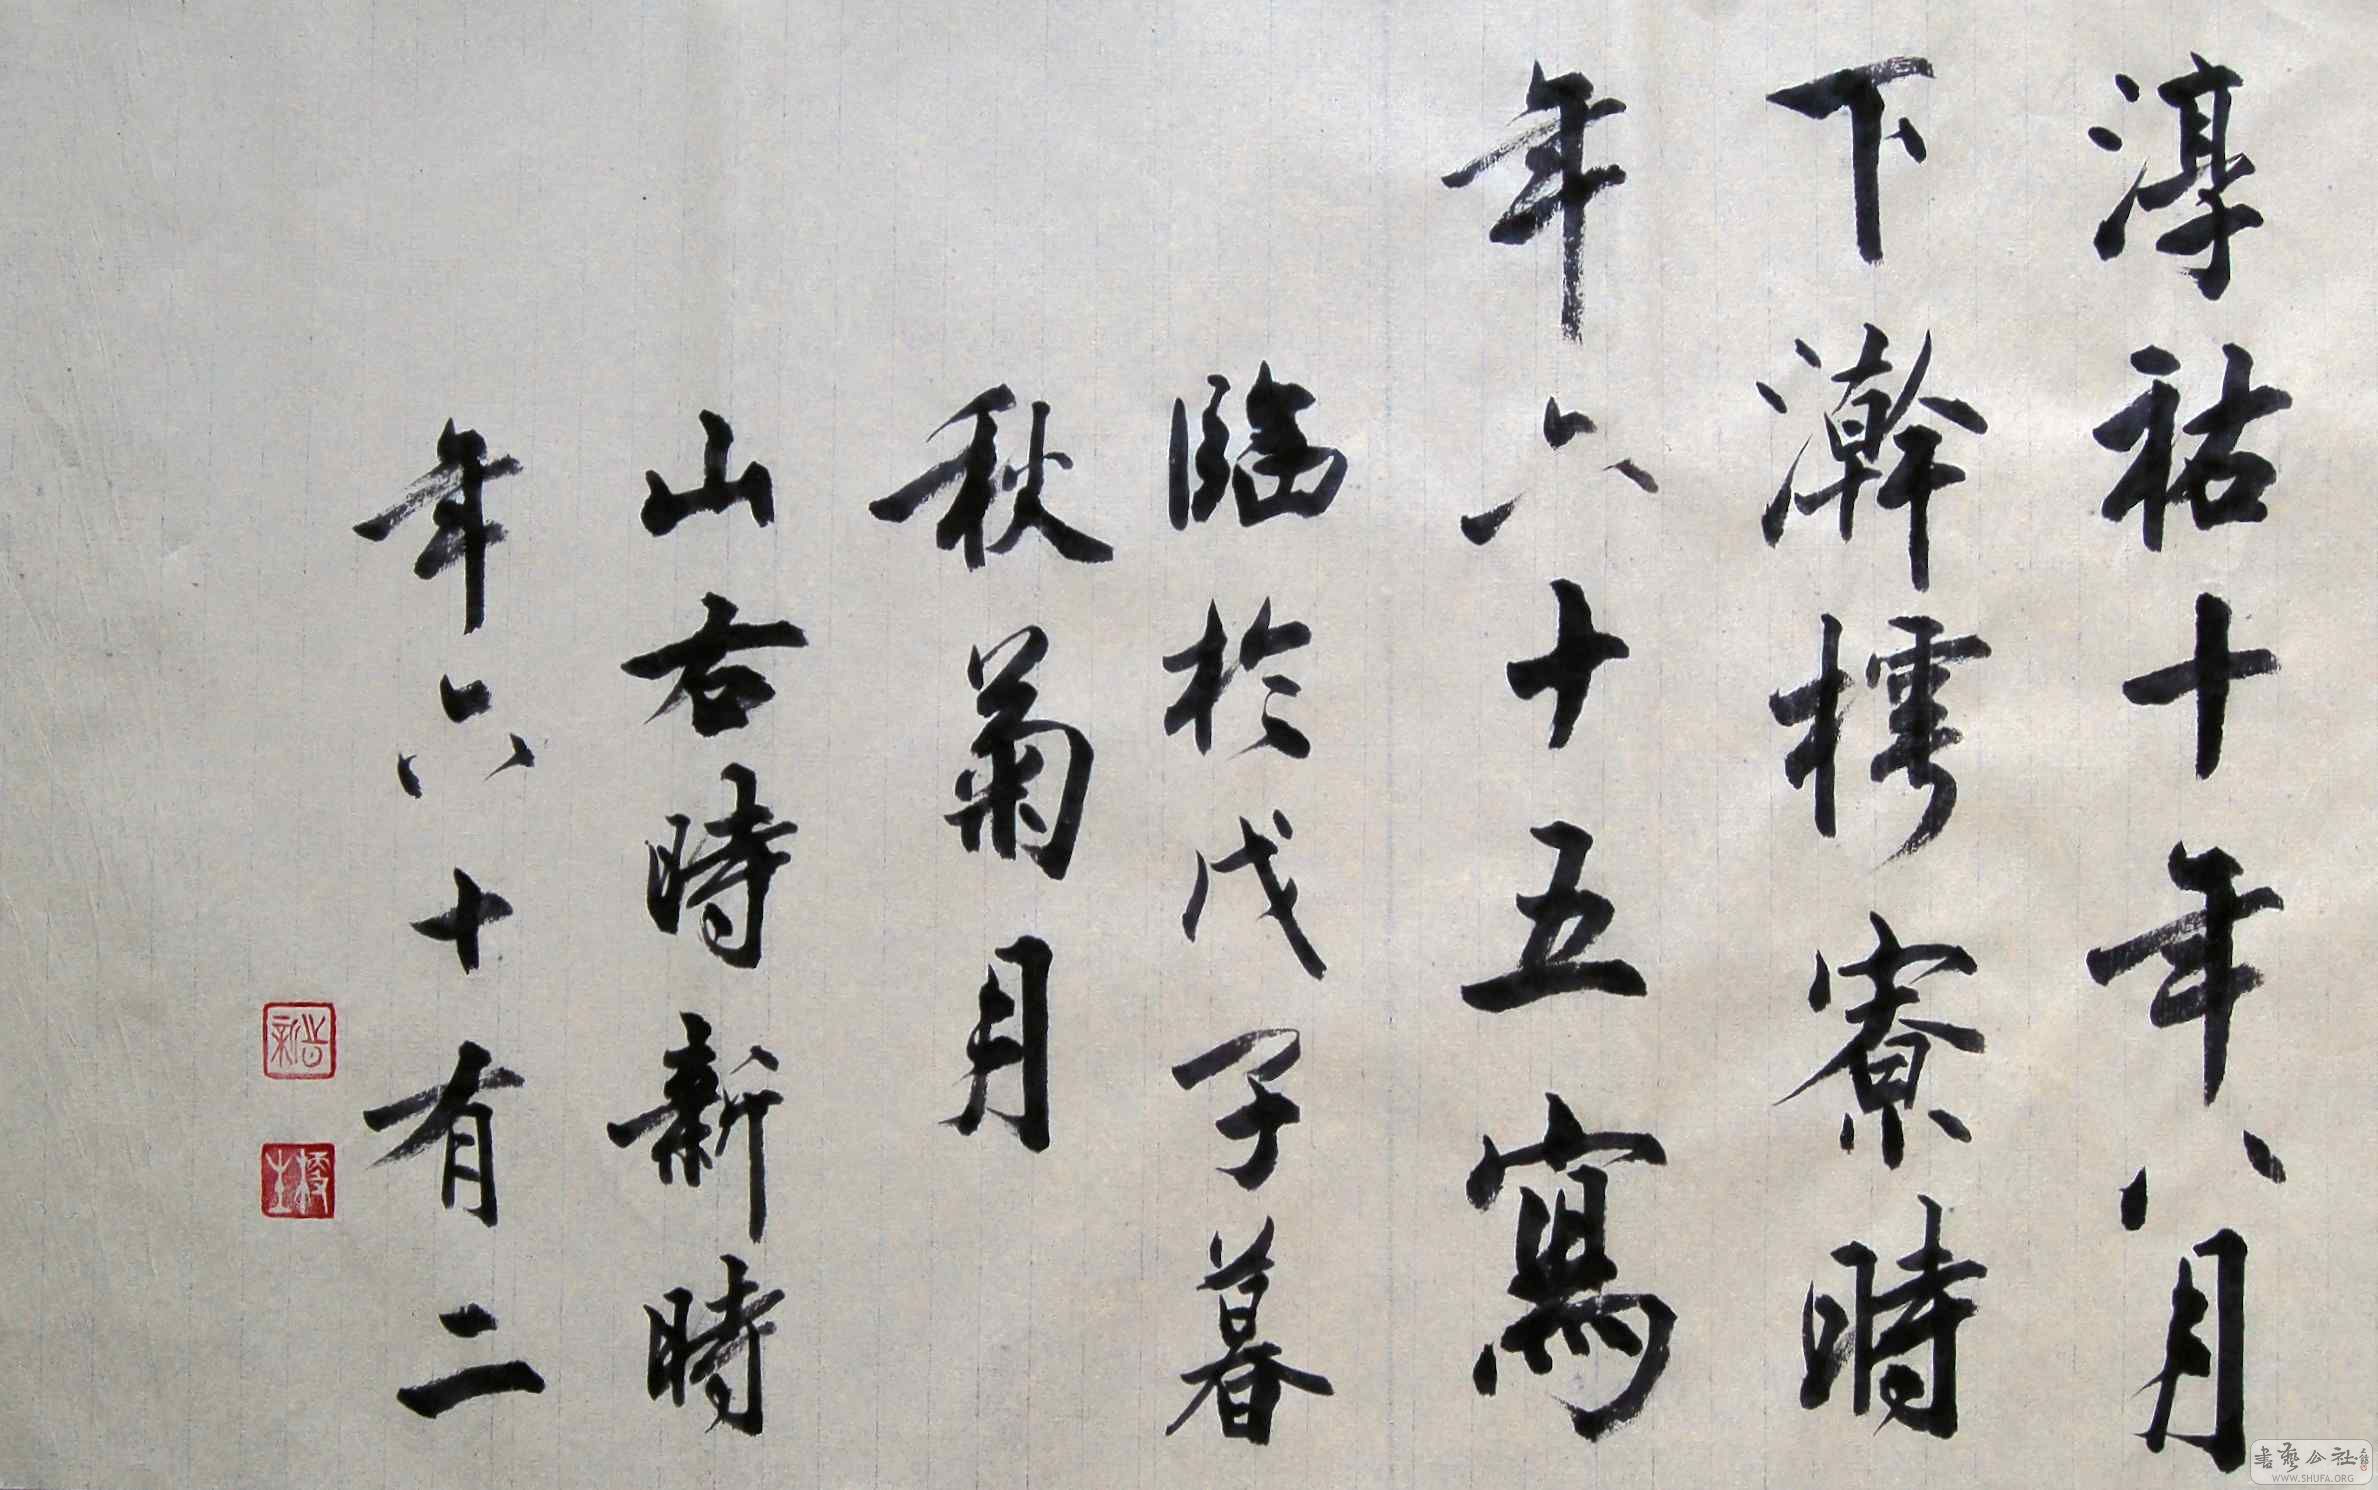 淳祐十年八月
下澣樗寮時
年六十五寫
臨於戊子暮
秋菊月
山右時新時
年六十有二
書藝公社
WWW.SHUFA.ORG